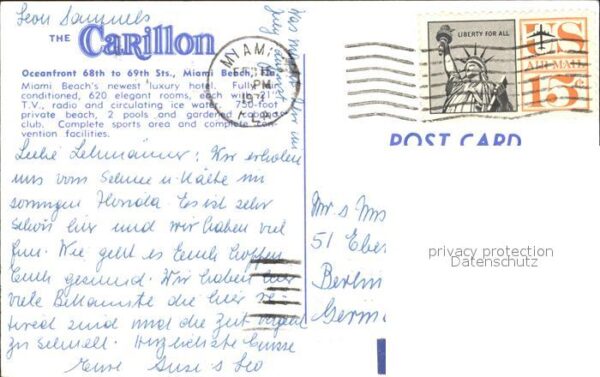 Leon Samuels
THE Carillon
Oceanfront 68th to 69th Sts., Miami Beach, Fla.
Miami Beach's newest luxury hotel. Fully air
conditioned, 620 elegant rooms, each with 21"
T.V., radio and circulating ice water. 750-foot
private beach, 2 pools and gardened cabana
club. Complete sports area and complete con-
vention facilities.
MIAMI
PM
197
FLA
LIBERTY FOR ALL
US
AIR MAIL
15¢
POST CARD
Liebe Lehmänner: Wir erholen
uns vom Schnee u. Kälte im
sonnigen Florida. Es ist sehr
schön hier und wir haben viel
fun. Wie geht es Euch hoffen
Euch gesund. Wir haben hier
viele Bekannte die hier
sind und die Zeit
zu schnell. Herzlichste Grüsse
Eure Suse & Leo
Mr & Mrs
51 Eber
Berlin
Germ
privacy protection
Datenschutz